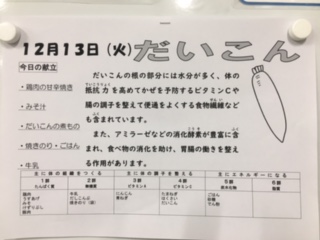 12月13日(火)だいこん
今日の献立
・鶏肉の甘辛焼き
・みそ汁
・だいこんの煮もの
・焼きのり・ごはん
・牛乳
だいこんの根の部分には水分が多く、体の
抵抗力を高めてかぜを予防するビタミンCや
腸の調子を整えて便通をよくする食物繊維など
も含まれています。
また、アミラーゼなどの消化酵素が豊富に含
まれ、食べ物の消化を助け、胃腸の働きを整え
る作用があります。
主に体の組織をつくる 主に体の調子を整える 主にエネルギーになる
1群 2群 3群 4群 5群 6群
たんぱく質 無機質 ビタミンA ビタミンC 炭水化物 脂質
鶏肉 牛乳 にんじん たまねぎ ごはん